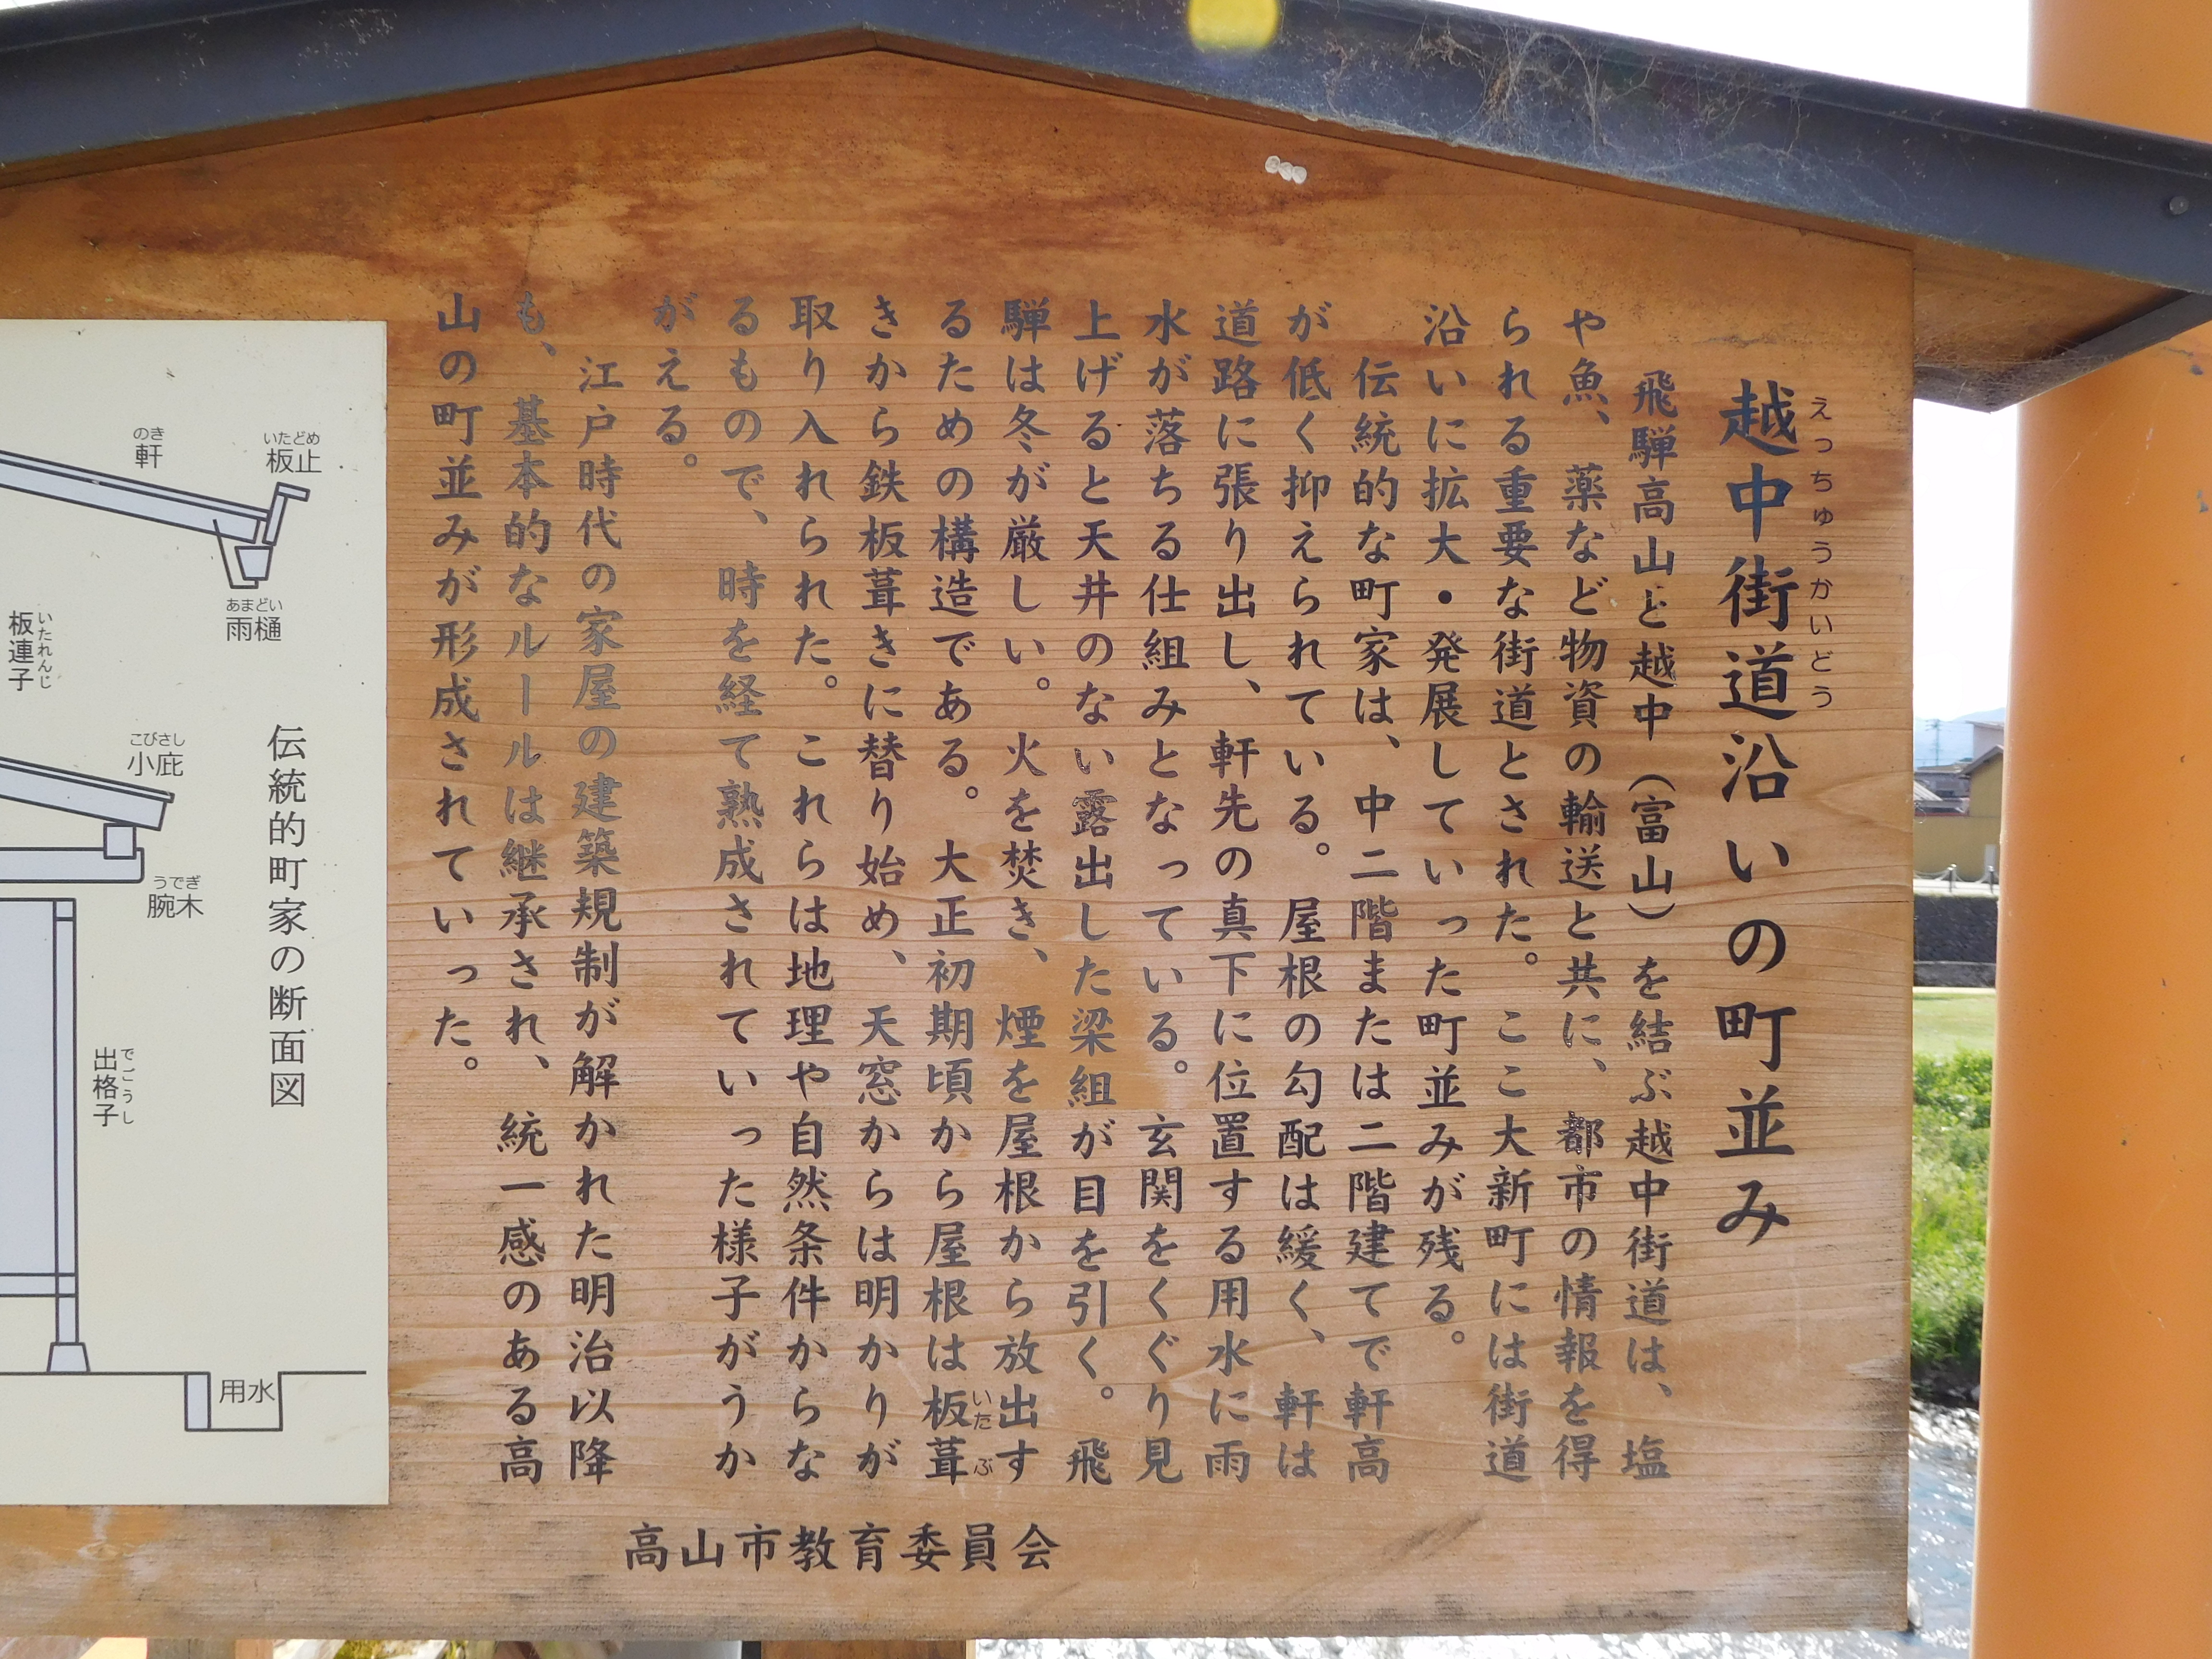 越中街道沿いの町並み
えっちゅうかいどう
飛騨高山と越中（富山）を結ぶ越中街道は、塩
や魚、薬など物資の輸送と共に、都市の情報を得
られる重要な街道とされた。ここ大新町には街道
沿いに拡大・発展していった町並みが残る。
伝統的な町家は、中二階または二階建てで軒高
が低く抑えられている。屋根の勾配は緩く、軒は
道路に張り出し、軒先の真下に位置する用水に雨
水が落ちる仕組みとなっている。玄関をくぐり見
上げると天井のない露出した梁組が目を引く。飛
騨は冬が厳しい。火を焚き、煙を屋根から放出す
るための構造である。大正初期頃から屋根は板葺
いた ぶ
きから鉄板葺きに替り始め、天窓からは明かりが
取り入れられた。これらは地理や自然条件からな
るもので、時を経て熟成されていった様子がうか
がえる。
江戸時代の家屋の建築規制が解かれた明治以降
も、基本的なルールは継承され、統一感のある高
山の町並みが形成されていった。
高山市教育委員会
伝統的町家の断面図
いたどめ
板止
のき
軒
あまどい
雨樋
いたれんじ
板連子
こびさし
小庇
うでぎ
腕木
でごうし
出格子
用水